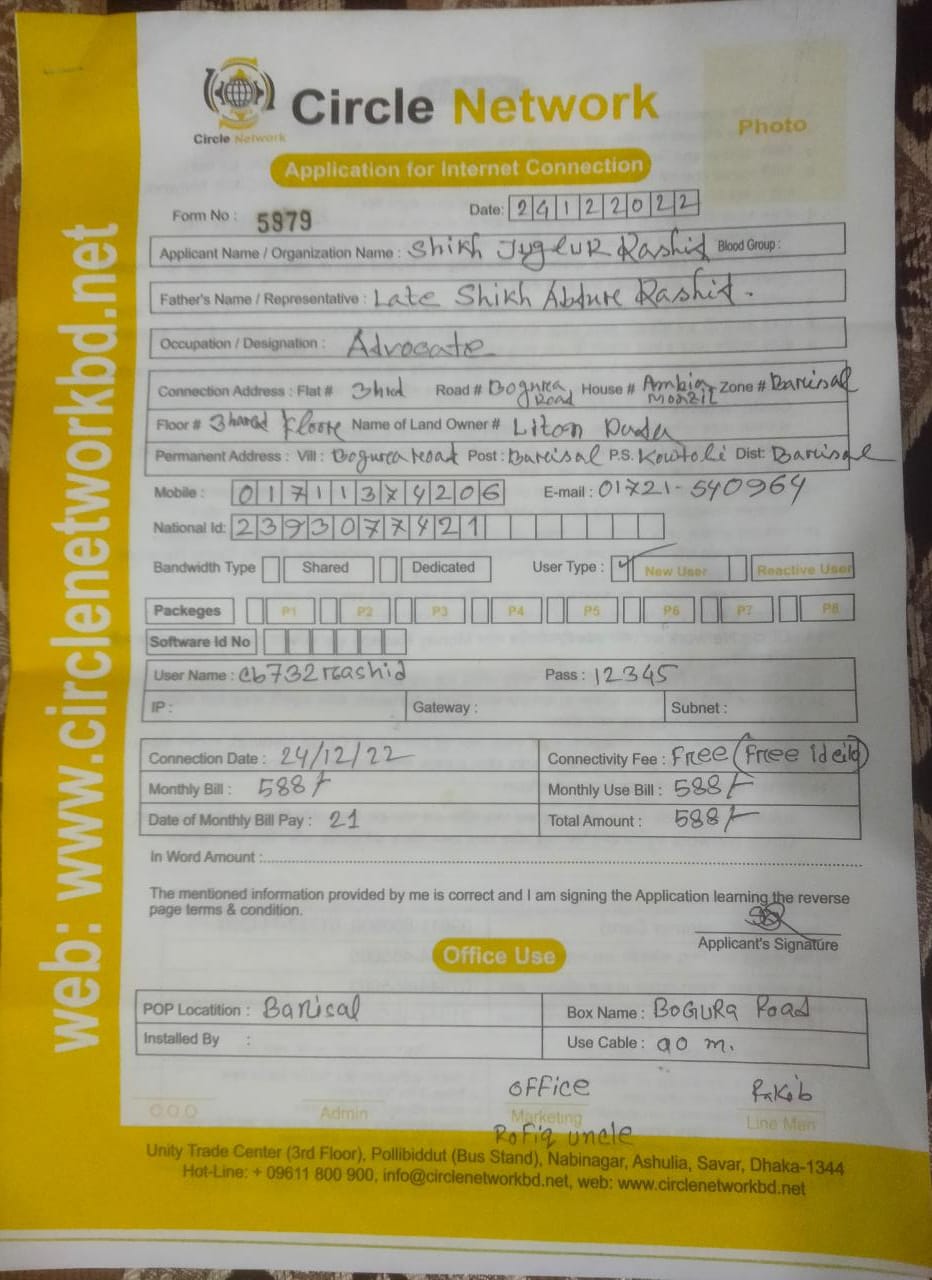 web: www.circlenetworkbd.net
Circle Network
Circle Network
Photo
Application for Internet Connection
Form No : 5979
Date: 24122022
Applicant Name / Organization Name : Shikh Jygeur Rashid Blood Group :
Father's Name / Representative : Late Shikh Abdure Rashid.
Occupation / Designation : Advocate
Connection Address : Flat # 3hrd Road # Bogura Road House # Ambia Monzil Zone # Barisal
Floor # Floore Name of Land Owner # Liton Dada
Permanent Address : Vill : Bogura road Post : Barisal P.S. Kowtoli Dist: Barisal
Mobile : 01711374206 E-mail : 01721-540964
National Id: 2393077421
Bandwidth Type Shared Dedicated User Type : New User Reactive User
Packeges P1 P2 P3 P4 P5 P6 P7 P8
Software Id No
User Name : cb732rashid Pass : 12345
IP : Gateway : Subnet :
Connection Date : 24/12/22 Connectivity Fee : Free (Free
Monthly Bill : 588/- Monthly Use Bill : 588/-
Date of Monthly Bill Pay : 21 Total Amount : 588/-
In Word Amount :
The mentioned information provided by me is correct and I am signing the Application learning the reverse
page terms & condition.
Applicant's Signature
Office Use
POP Locatition : Barisal Box Name : BOGURa Road
Installed By : Use Cable : 90 m.
OFFice Rakib
C.O.O Admin Marketing Line Man
Rofiq uncle
Unity Trade Center (3rd Floor), Pollibiddut (Bus Stand), Nabinagar, Ashulia, Savar, Dhaka-1344
Hot-Line: + 09611 800 900, info@circlenetworkbd.net, web: www.circlenetworkbd.net